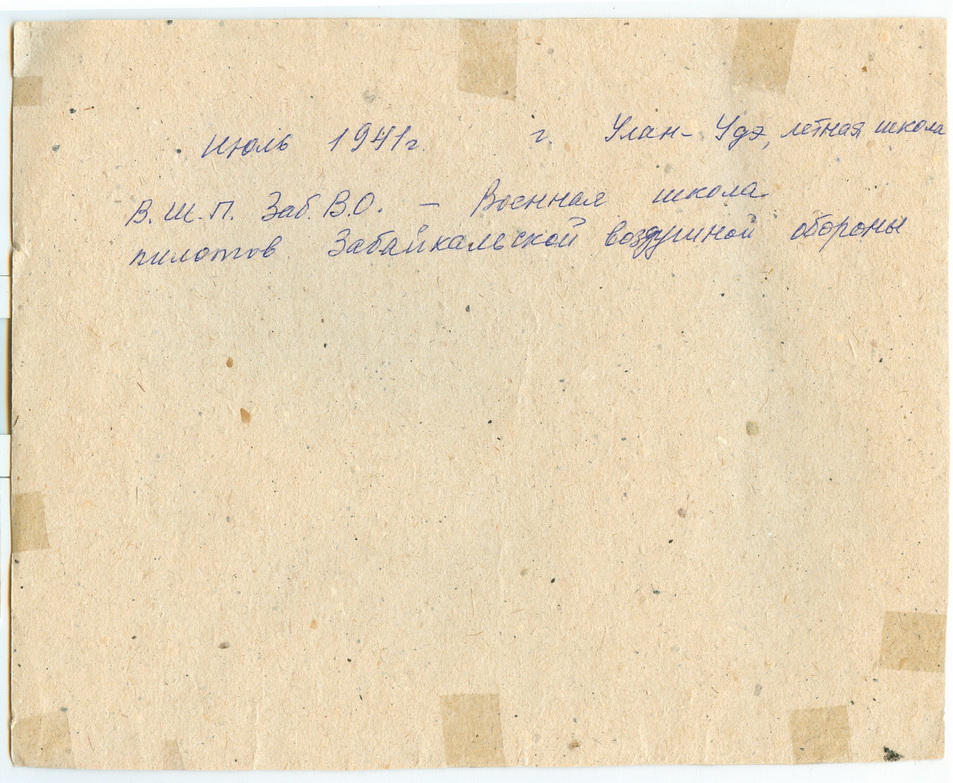 Июль 1941г. г. Улан-Удэ, летная школа
В.Ш.П. Заб.В.О. – Военная школа
пилотов Забайкальской воздушной обороны